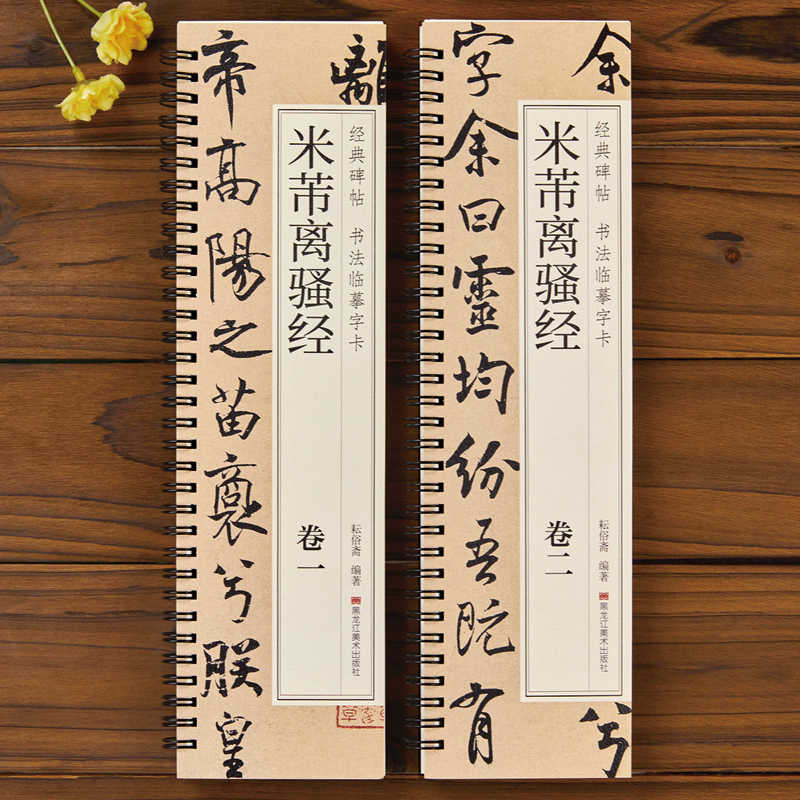 離
经典碑帖 书法临摹字卡
米芾离骚经
卷一
耘俗斋 编著
黑龙江美术出版社
帝高陽之苗裔兮朕皇
余
兮
经典碑帖 书法临摹字卡
米芾离骚经
卷二
耘俗斋 编著
黑龙江美术出版社
字余曰靈均紛吾既有